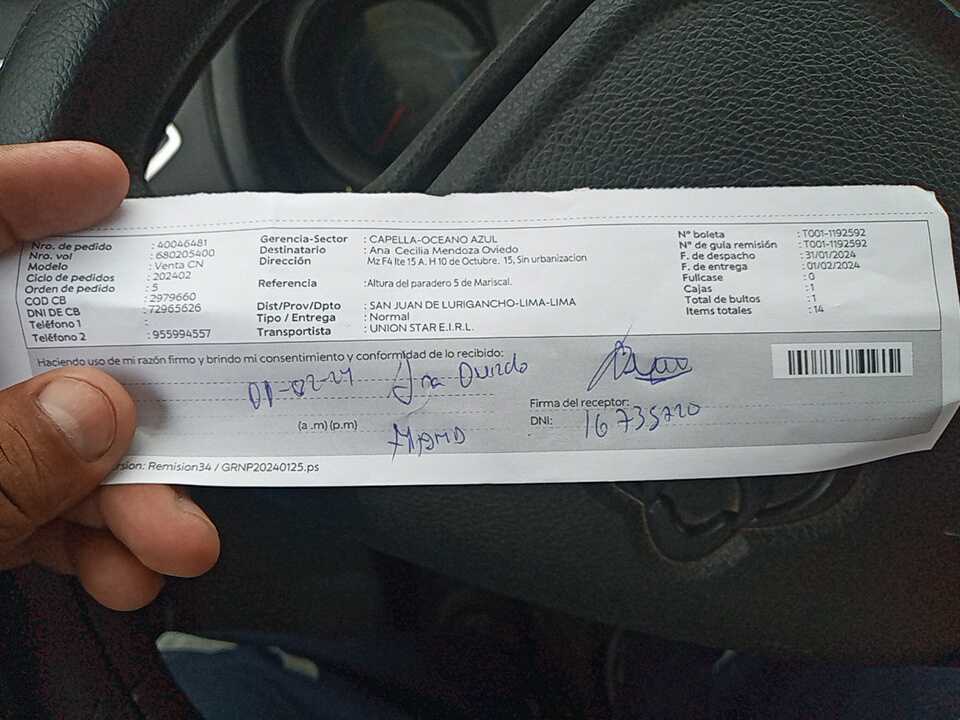 Nro. de pedido : 40046481
Nro. vol : 680205400
Modelo : Venta CN
Ciclo de pedidos : 202402
Orden de pedido : 5
COD CB : 2979660
DNI DE CB : 72965626
Teléfono 1 :
Teléfono 2 : 955994557
Gerencia-Sector : CAPELLA-OCEANO AZUL
Destinatario : Ana Cecilia Mendoza Oviedo
Dirección Mz F4 lte 15 A. H 10 de Octubre. 15, Sin urbanizacion
Referencia :Altura del paradero 5 de Mariscal.
Dist/Prov/Dpto : SAN JUAN DE LURIGANCHO-LIMA-LIMA
Tipo / Entrega : Normal
Transportista : UNION STAR E.I.R.L.
N° boleta : T001-1192592
N° de guía remisión : T001-1192592
F. de despacho : 31/01/2024
F. de entrega : 01/02/2024
Fullcase : 0
Cajas : 1
Total de bultos : 1
Items totales : 14
Haciendo uso de mi razón firmo y brindo mi consentimiento y conformidad de lo recibido:
01-02-24 Ana Oviedo
Firma del receptor:
(a .m) (p.m)
DNI: 16735720
rsion: Remision34 / GRNP20240125.ps